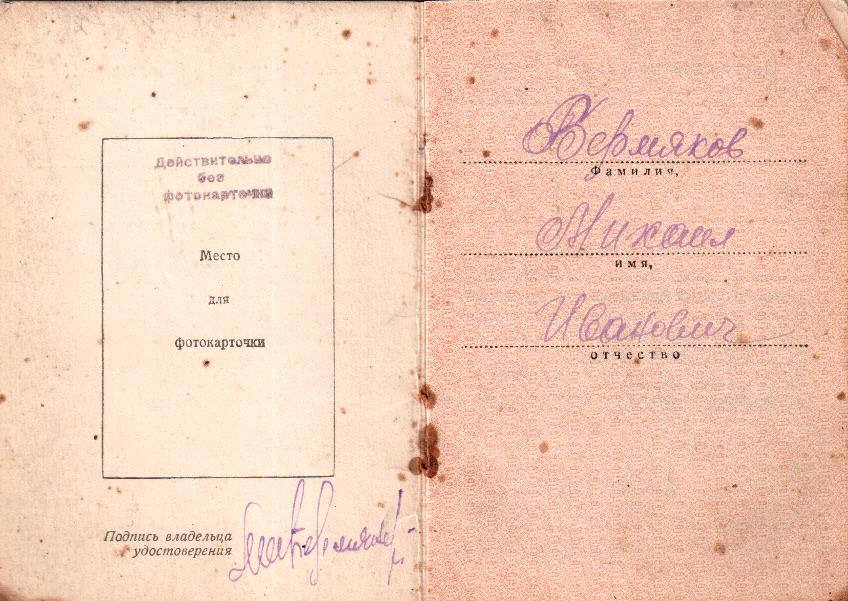 Действительно
без
фотокарточки
Место
для
фотокарточки
Подпись владельца
удостоверения
Вермяков
Фамилия,
Михаил
имя,
Иванович
отчество